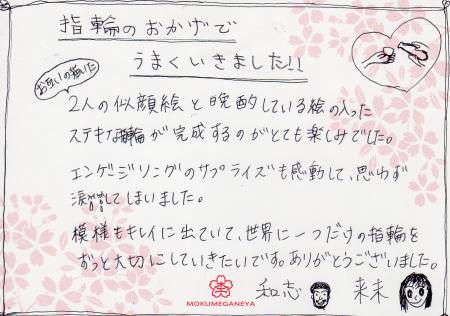 指輪のおかげで
うまくいきました!!
お互いの描いた
2人の似顔絵と晩酌している絵の入った
ステキな指輪が完成するのがとても楽しみでした。
エンゲージリングのサプライズも感動して、思わず
涙してしまいました。
模様もキレイに出ていて、世界に一つだけの指輪を
ずっと大切にしていきたいです。ありがとうございました。
MOKUMEGANEYA
和志
来未